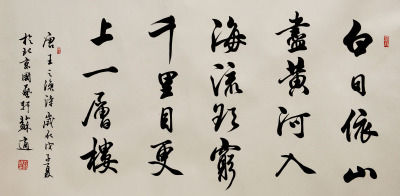 白日依山
盡黃河入
海流欲窮
千里目更
上一層樓
唐王之渙詩歲次戊子夏
於北京國藝軒蘇適